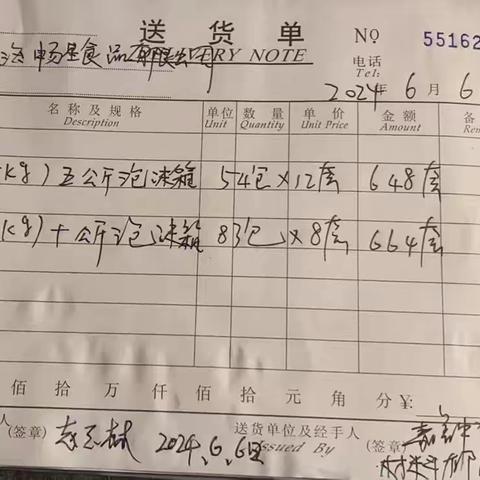 送 货 单
DELIVERY NOTE
NO 55162
畅星食品有限公司
电话
Tel:
2024年 6 月 6
名称及规格 单位 数量 单价 金额 备
Description Unit Quantity Unit Price Amount Rem
kg) 五公斤泡沫箱 54包×12套 648套
kg) 十公斤泡沫箱 83包×8套 664套
佰 拾 万 仟 佰 拾 元 角 分 ¥:
人 送货单位及经手人
(签章) 2024.6.6日 Issued By (签章)